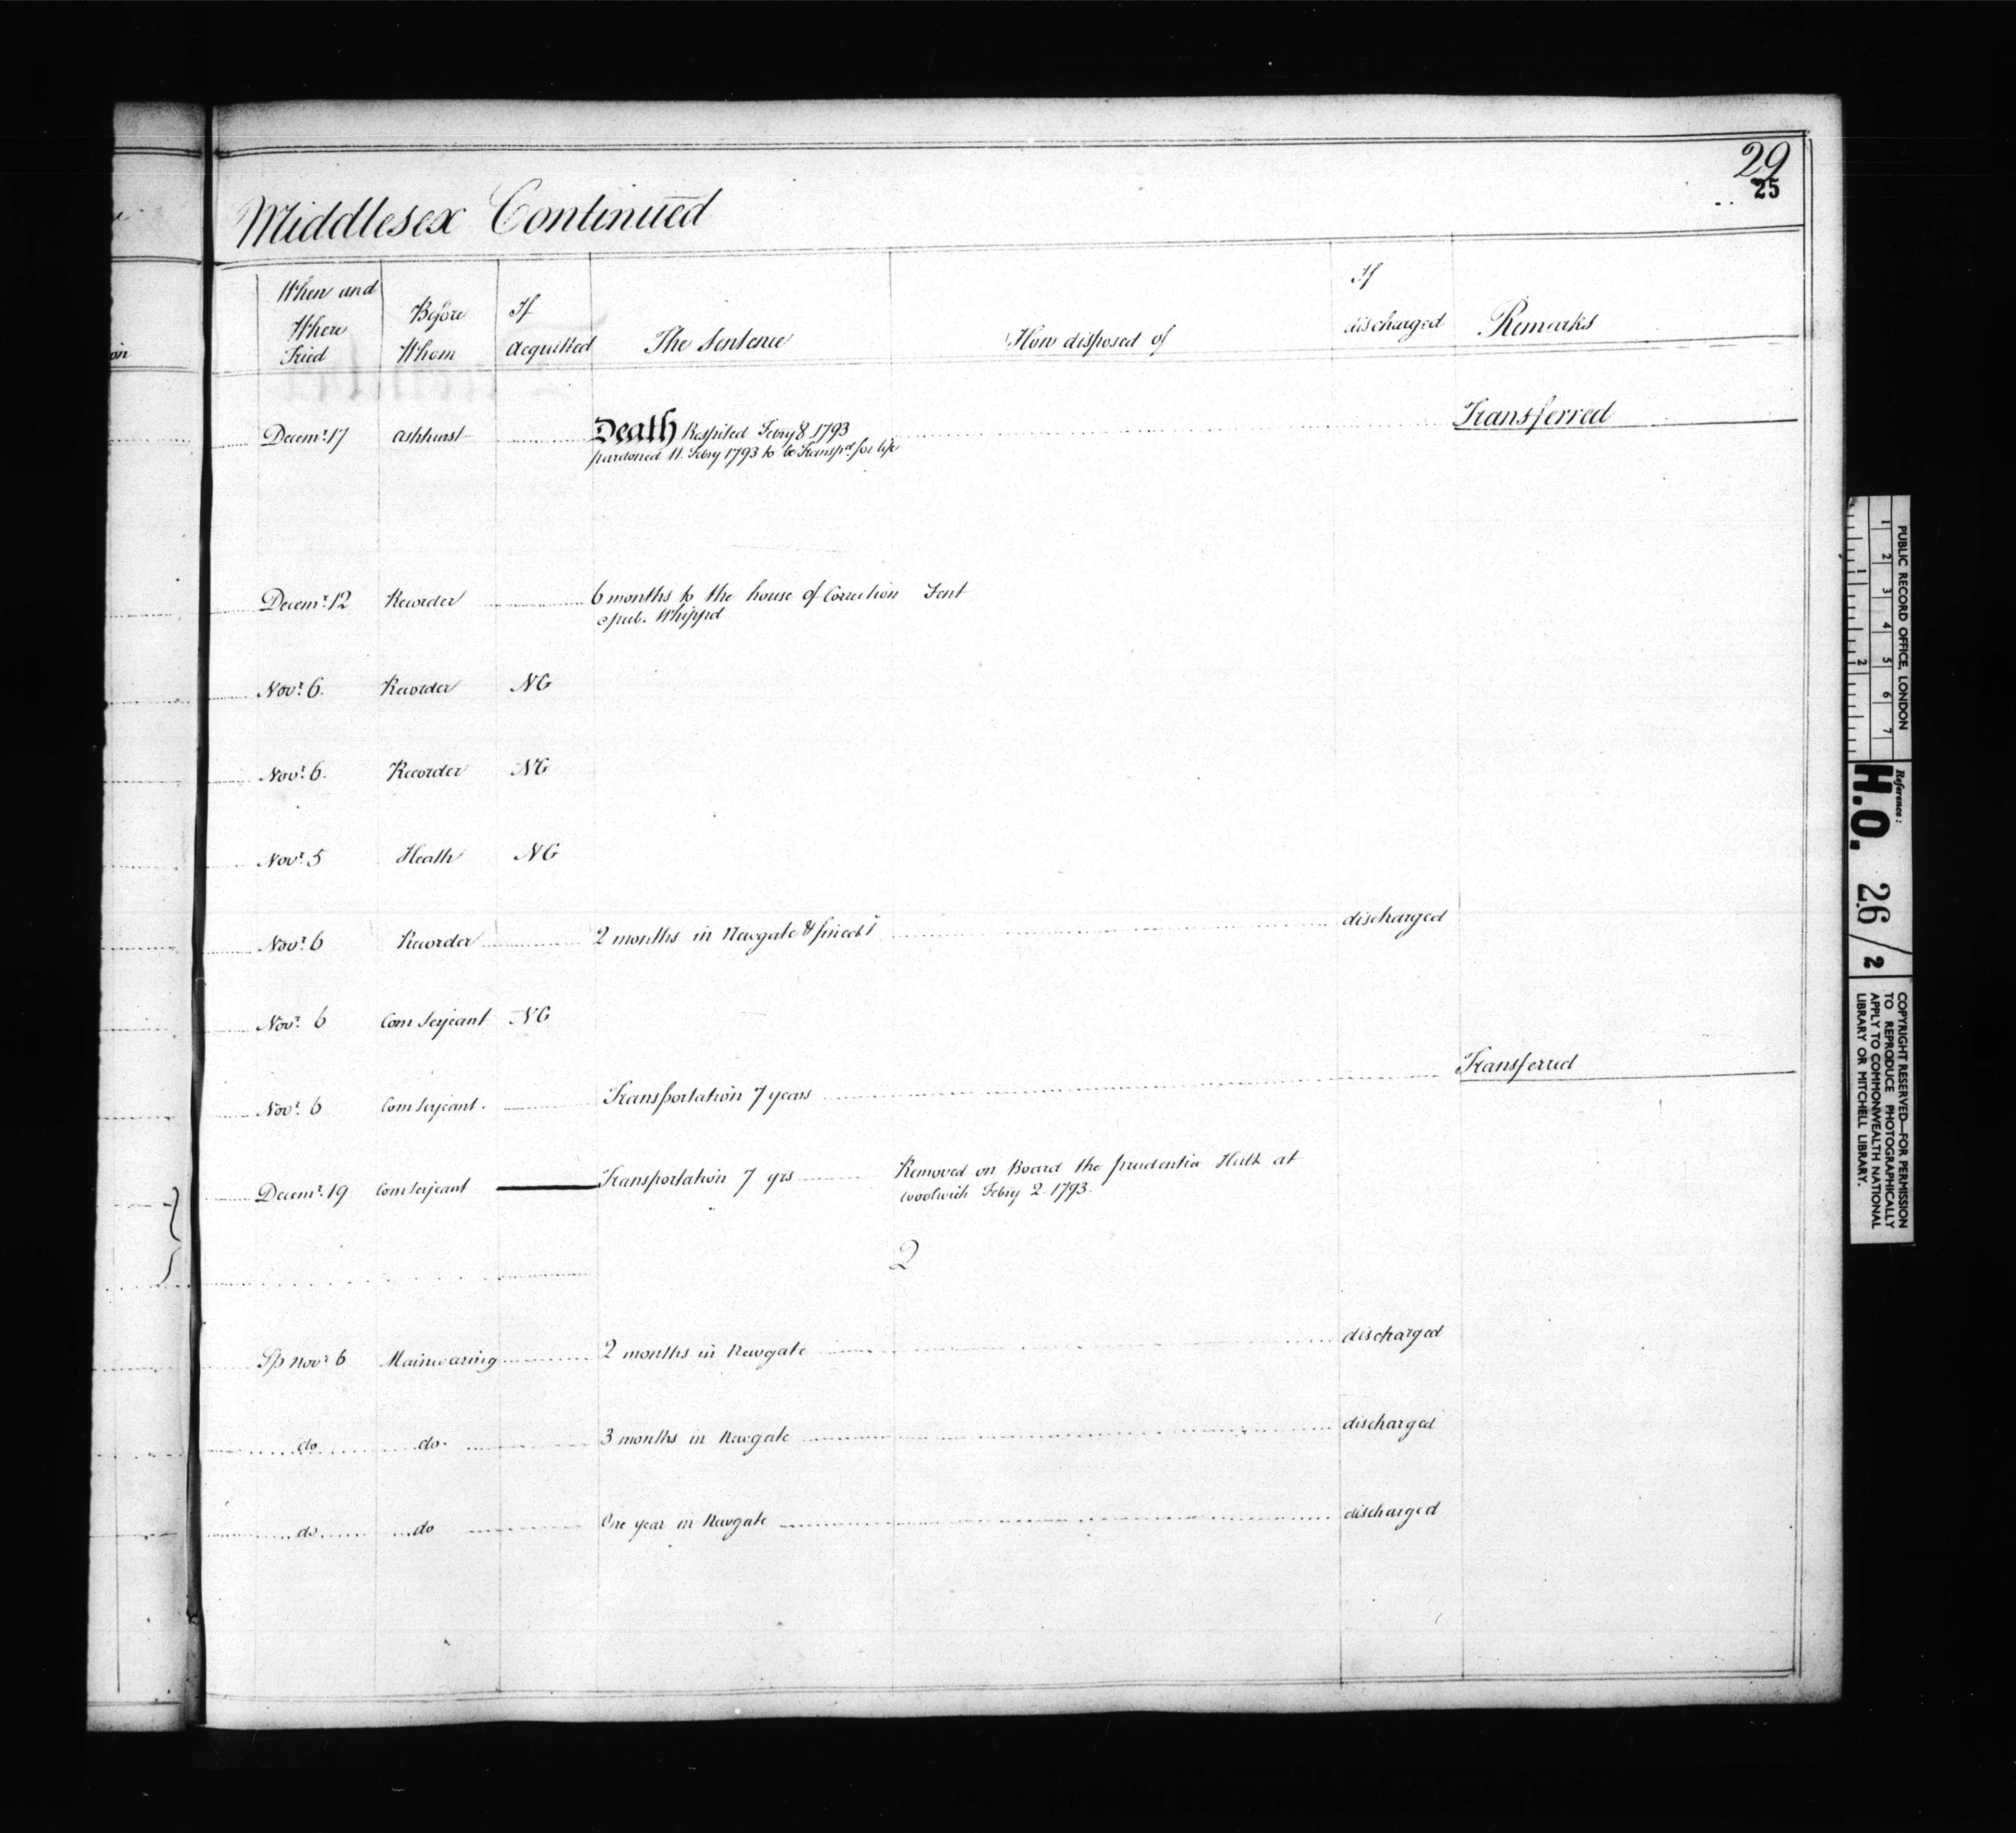 29
25
Middlesex Continued
When and Where Tried
Before Whom
If acquitted
The Sentence
How disposed of
If discharged
Remarks
Decemr. 17 Ashhurst Death Respited Febry 8 1793 Transferred
pardoned 11. Febry 1793 to be Transpd. for life
Decemr. 12 Recorder 6 months to the house of Correction Sent
& pub. Whippd
Novr. 6. Recorder NG
Novr. 6. Recorder NG
Novr. 5 Heath NG
Novr. 6 Recorder 2 months in Newgate & fined 1 discharged
Novr. 6 Com Serjeant NG
Novr. 6 Com Serjeant. Transportation 7 years Transferred
Decemr. 19 Com Serjeant Transportation 7 yrs Removed on Board the prudentia Hulk at
woolwich Febry 2. 1793.
2
Sp Novr. 6 Mainwaring 2 months in Newgate discharged
do do 3 months in Newgate discharged
do do One year in Newgate discharged
PUBLIC RECORD OFFICE, LONDON
1 2 3 4 5 6 7
1 2
Reference:
H.O. 26/2
COPYRIGHT RESERVED—FOR PERMISSION
TO REPRODUCE PHOTOGRAPHICALLY
APPLY TO COMMONWEALTH NATIONAL
LIBRARY OR MITCHELL LIBRARY.